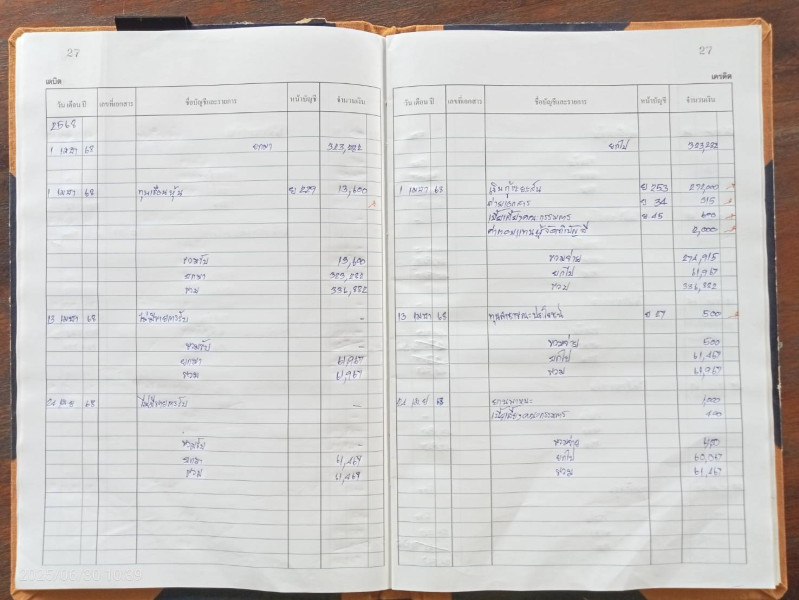 27
เดบิต
วัน เดือน ปี เลขที่เอกสาร ชื่อบัญชีและรายการ หน้าบัญชี จำนวนเงิน
2568
1 เมษา 68 ยกมา 323,282
1 เมษา 68 ทุนเรือนหุ้น ย 229 13,600
รวมรับ 13,600
ยกมา 323,282
รวม 336,882
13 เมษา 68 ไม่มีรายการรับ -
รวมรับ -
ยกมา 61,967
รวม 61,967
ไม่มีรายการรับ -
รวมรับ -
ยกมา 61,467
รวม 61,467
27
เครดิต
วัน เดือน ปี เลขที่เอกสาร ชื่อบัญชีและรายการ หน้าบัญชี จำนวนเงิน
ยกไป 323,282
1 เมษา 68 เงินกู้ระยะสั้น ย 253 272,000
ถ่ายเอกสาร ย 34 315
เบี้ยเลี้ยงคณะกรรมการ ย 45 600
ค่าตอบแทนผู้จัดทำบัญชี 2,000
รวมจ่าย 274,915
ยกไป 61,967
รวม 336,882
13 เมษา 68 ทุนสาธารณะประโยชน์ 500
รวมจ่าย 500
ยกไป 61,467
รวม 61,967
ยานพาหนะ
เบี้ยเลี้ยงคณะกรรมการ
รวมจ่าย
ยกไป
รวม 61,467